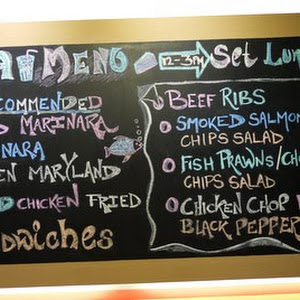 A MENU
COMMENDED
MARINARA
NARA
EN MARYLAND
CHICKEN FRIED
DWICHES
12-3PM Set Lun
BEEF RIBS
SMOKED SALMON
CHIPS SALAD
FISH PRAWNS/CH
CHIPS SALAD
CHICKEN CHOP
BLACK PEPPER